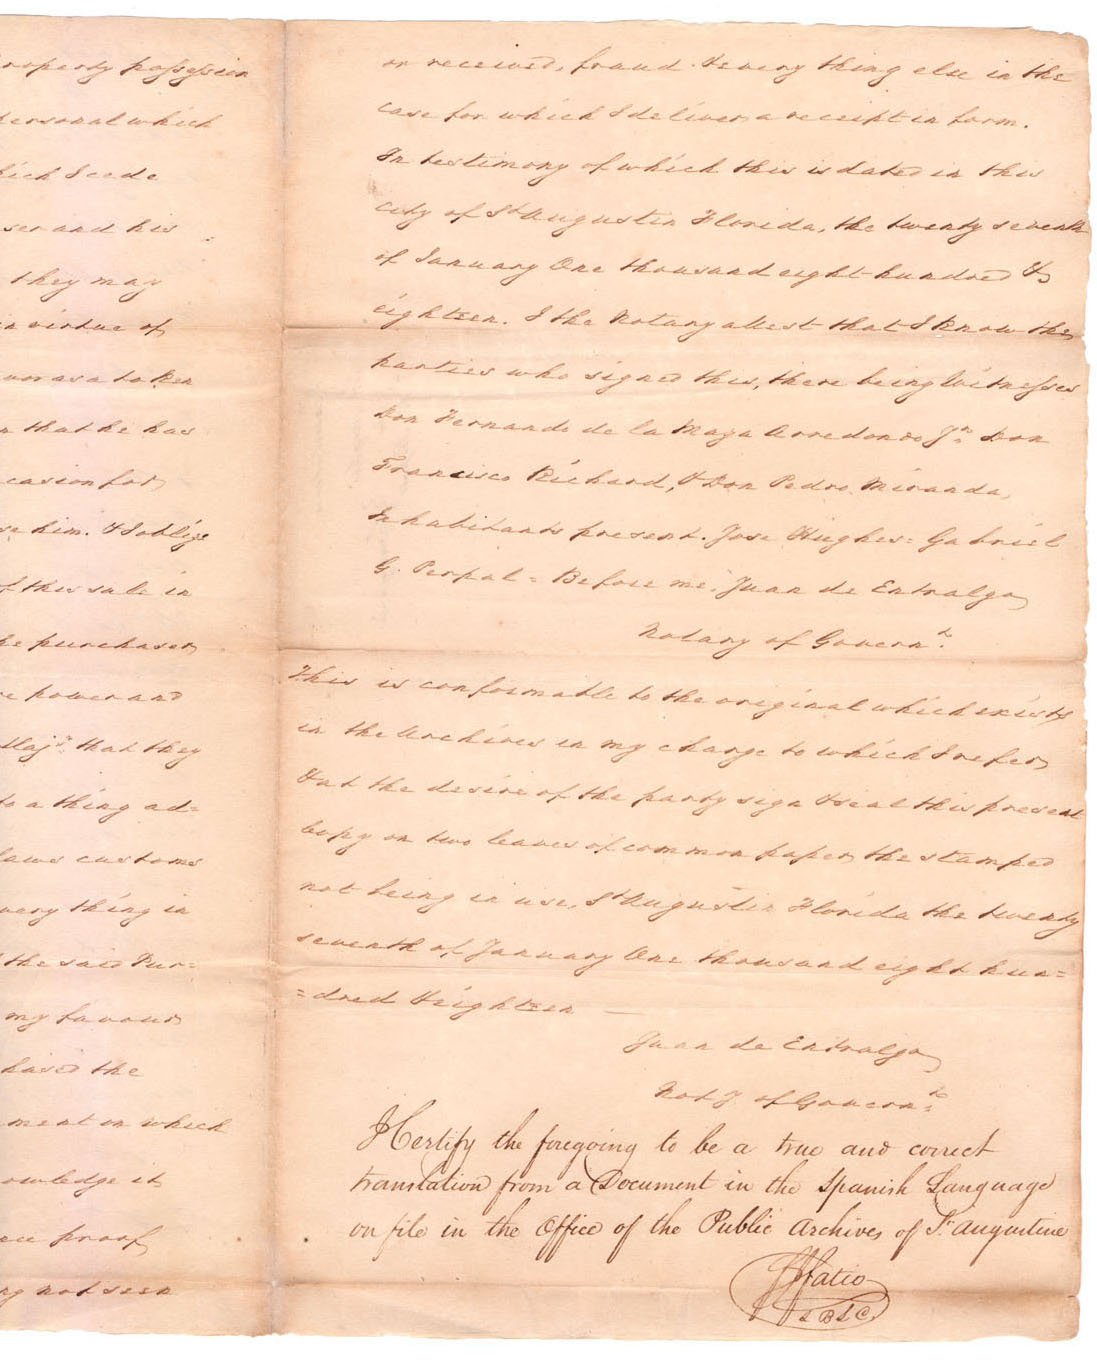 property possession
personal which
which I cede
ser and his
they may
in virtue of
as a token
that he has
casion for
se him. & I oblige
of this sale in
he purchaser
re power and
Majy. that they
to a thing ad=
laws customs
very thing in
the said Pur=
my favour
hased the
ment on which
owledge it
proof
ng not seen
or received, fraud & every thing else in the
case for which I deliver a receipt in form.
In testimony of which this is dated in this
city of St Augustin Florida, the twenty seventh
of January One thousand eight hundred &
eighteen. I the Notary attest that I know the
parties who signed this, there being Witnesses
Don Fernando de la Maza Arredondo Jn. Don
Francisco Richard, & Don Pedro Miranda,
Inhabitants present. Jose Hughes = Gabriel
G. Perpal = Before me, Juan de Entralgo
Notary of Governt.
This is conformable to the original which exists
in the Archives in my charge to which I refer
& at the desire of the party sign & seal this present
Copy on two leaves of common paper, the stamped
not being in use, St Augustin Florida the twenty
seventh of January One thousand eight hun=
=dred & eighteen —
Juan de Entralgo
Not.y. of Governt.
I Certify the foregoing to be a true and correct
translation from a Document in the Spanish Language
on file in the Office of the Public Archives of St. Augustine
F J Fatio
S B L C.